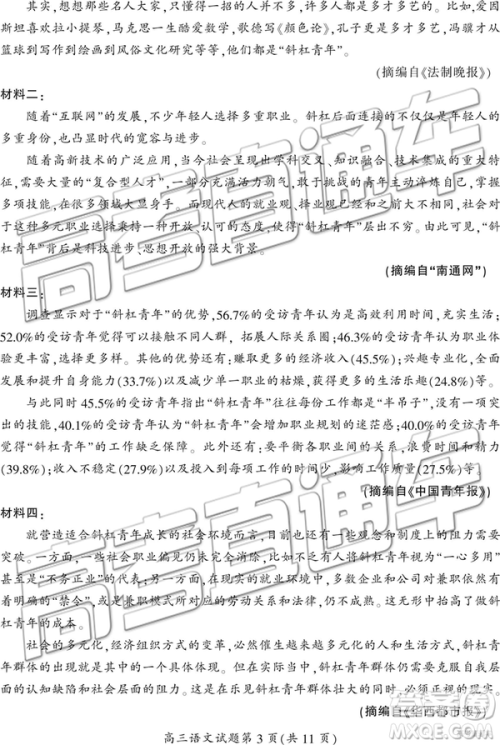 其实,想想那些名人大家,只懂得一招的人并不多,许多人都是多才多艺的。比如,爱因
斯坦喜欢拉小提琴,马克思一生酷爱数学,歌德写《颜色论》,孔子更是多才多艺,冯骥才从
篮球到写作到绘画到风俗文化研究等等,他们都是“斜杠青年”。
(摘编自《法制晚报》)
材料二:
随着“互联网”的发展,不少年轻人选择多重职业。斜杠后面连接的不仅仅是年轻人的
多重身份,也凸显时代的宽容与进步。
随着高新技术的广泛应用,当今社会呈现出学科交叉、知识融合、技术集成的重大特
征,需要大量的“复合型人才”,一部分充满活力朝气,敢于挑战的青年主动淬炼自己,掌握
多项技能,在很多领域大显身手。而现代人的就业观、择业观已经和之前大不相同,社会对
于这种多元职业选择秉持一种开放、认可的态度,使得“斜杠青年”层出不穷。由此可见,“斜
杠青年”背后是科技进步、思想开放的强大背景。
(摘编自“南通网”)
材料三:
调查显示对于“斜杠青年”的优势,56.7%的受访青年认为是高效利用时间,充实生活;
52.0%的受访青年觉得可以接触不同人群,拓展人际关系圈;46.3%的受访青年认为职业体
验更丰富,选择更多样。其他的优势还有:赚取更多的经济收入(45.5%);兴趣专业化,全面
发展和提升自身能力(33.7%)以及减少单一职业的枯燥,获得更多的生活乐趣(24.8%)等。
与此同时45.5%的受访青年指出“斜杠青年”往往每份工作都是“半吊子”,没有一项突
出的技能,40.1%的受访青年认为“斜杠青年”会增加职业规划的迷茫感;40.0%的受访青年
觉得“斜杠青年”的工作缺乏保障。此外还有:要平衡各职业间的关系,浪费时间和精力
(39.8%);收入不稳定(27.9%)以及投入到每项工作的时间少,影响工作质量(27.5%)等。
(摘编自《中国青年报》)
材料四:
就营造适合斜杠青年成长的社会环境而言,目前也还有一些观念和制度上的阻力需要
突破。一方面,一些社会职业偏见仍未完全消除,比如不乏有人将斜杠青年视为“一心多用”
甚至是“不务正业”的代表;另一方面,在现实的就业环境中,多数企业和公司对兼职依然有
着明确的“禁令”,或是兼职模式所对应的劳动关系和法律,仍不成熟。这无形中抬高了做斜
杠青年的成本。
社会的多元化,经济组织方式的变化,必然催生越来越多元化的人和生活方式,斜杠青
年群体的出现就是其中的一个具体体现。但在实际当中,斜杠青年群体仍需要克服来自自
身的认知缺陷和社会层面的阻力。这是在乐见斜杠青年群体壮大的同时,必须正视的现实。
(摘编自《华西都市报》)
高三语文试题第 3 页(共 11 页)
高考直通车
高考直通车
高考直通车